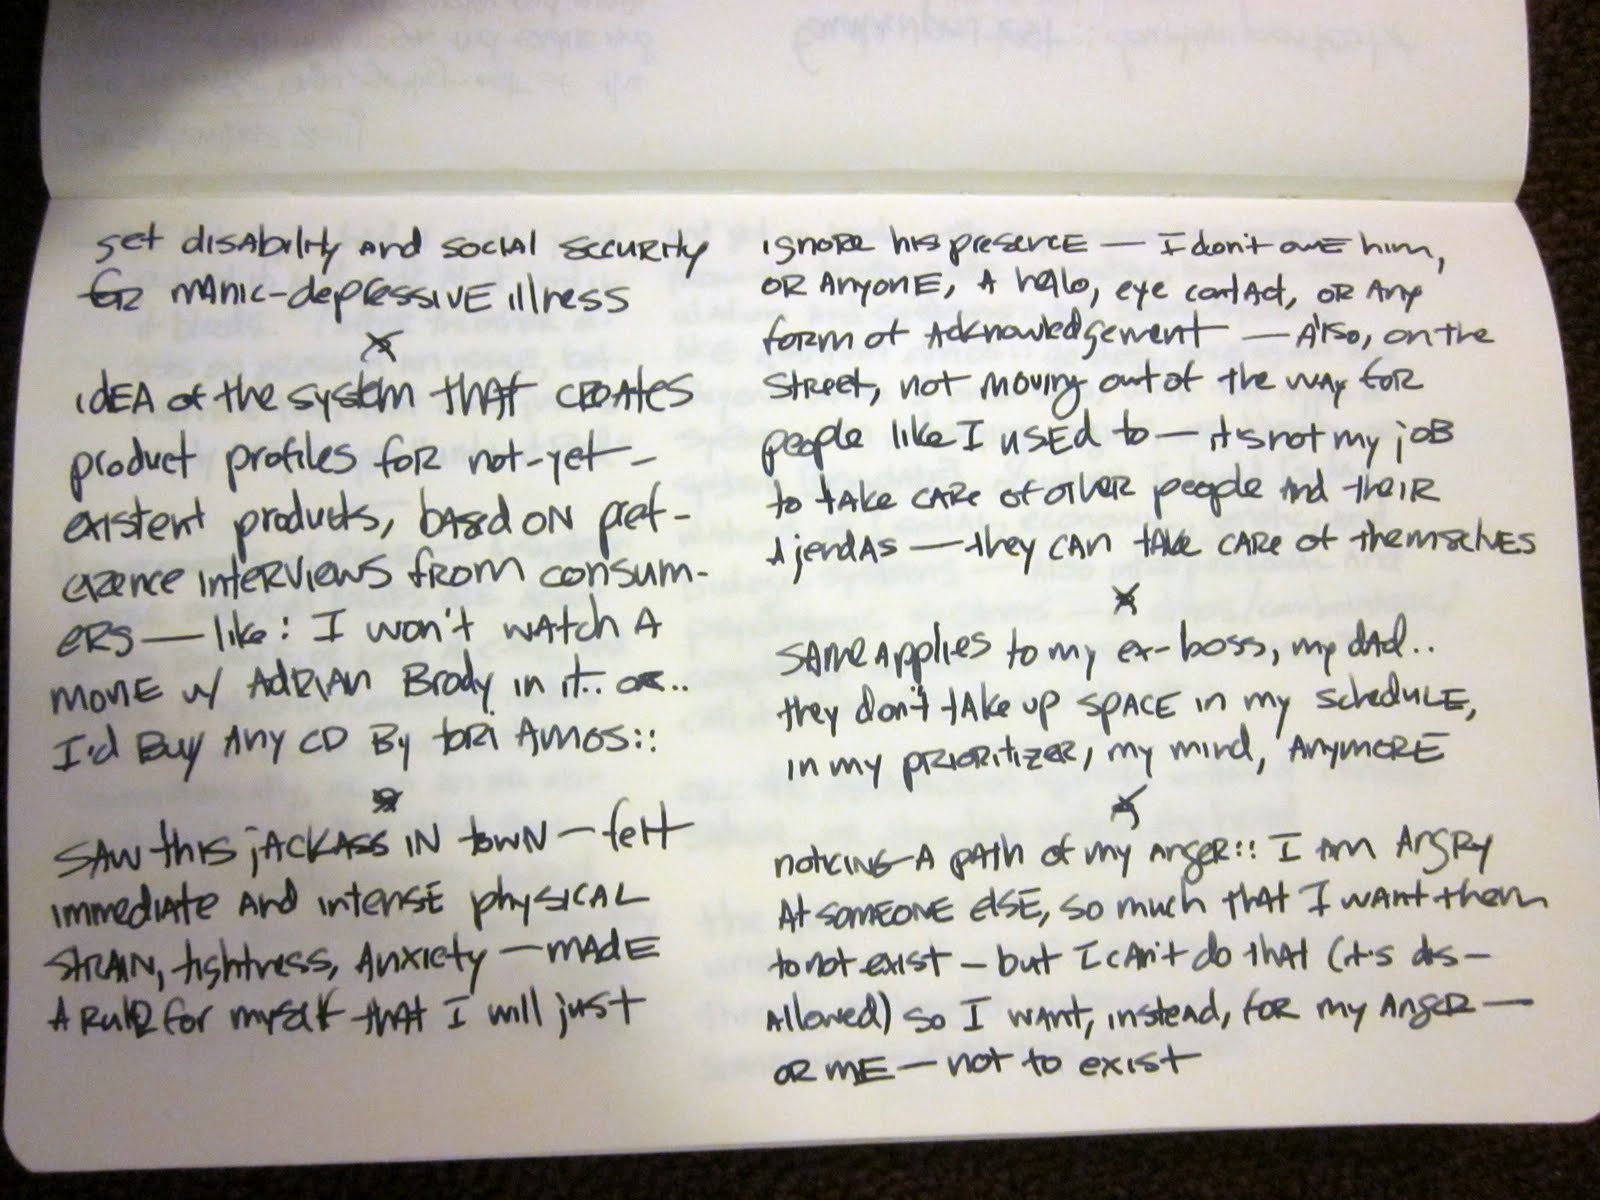 get disability and social security
for manic-depressive illness
idea of the system that creates
product profiles for not-yet-
existent products, based on pref-
erence interviews from consum-
ers — like: I won't watch a
movie w/ Adrian Brody in it.. or..
I'd buy any CD by Tori Amos::
saw this jackass in town — felt
immediate and intense physical
strain, tightness, anxiety — made
a rule for myself that I will just
ignore his presence — I don't owe him,
or anyone, a hello, eye contact, or any
form of acknowledgement — Also, on the
street, not moving out of the way for
people like I used to — it's not my job
to take care of other people and their
ajendas — they can take care of themselves
same applies to my ex-boss, my dad..
they don't take up space in my schedule,
in my prioritizer, my mind, anymore
noticing a path of my anger:: I am angry
at someone else, so much that I want them
to not exist — but I can't do that (it's dis-
allowed) so I want, instead, for my anger —
or me — not to exist